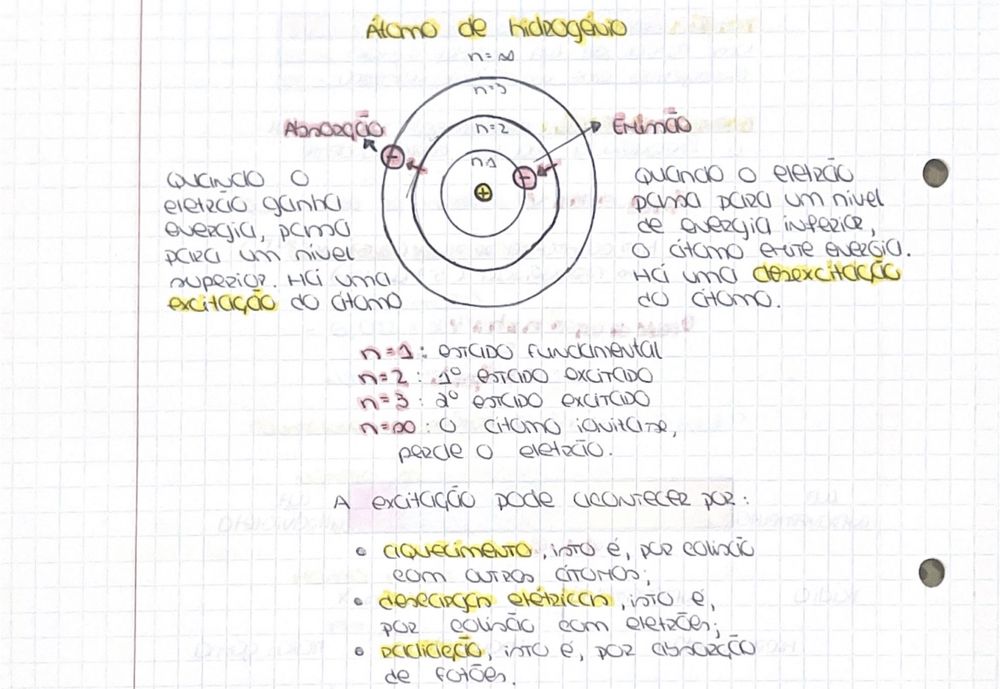 Átomo de hidrogénio
n=∞
n=3
n=2
n=1
Absorção
Emissão
-
-
+
Quando o
eletrão ganha
energia, passa
para um nível
superior. Há uma
excitação do átomo
Quando o eletrão
passa para um nível
de energia inferior,
o átomo emite energia.
Há uma desexcitação
do átomo.
n=1: estado fundamental
n=2: 1º estado excitado
n=3: 2º estado excitado
n=∞: o átomo ioniza-se,
perde o eletrão.
A excitação pode acontecer por:
• aquecimento, isto é, por colisão
com outros átomos;
• descargas elétricas, isto é,
por colisão com eletrões;
• radiação, isto é, por absorção
de fotões.